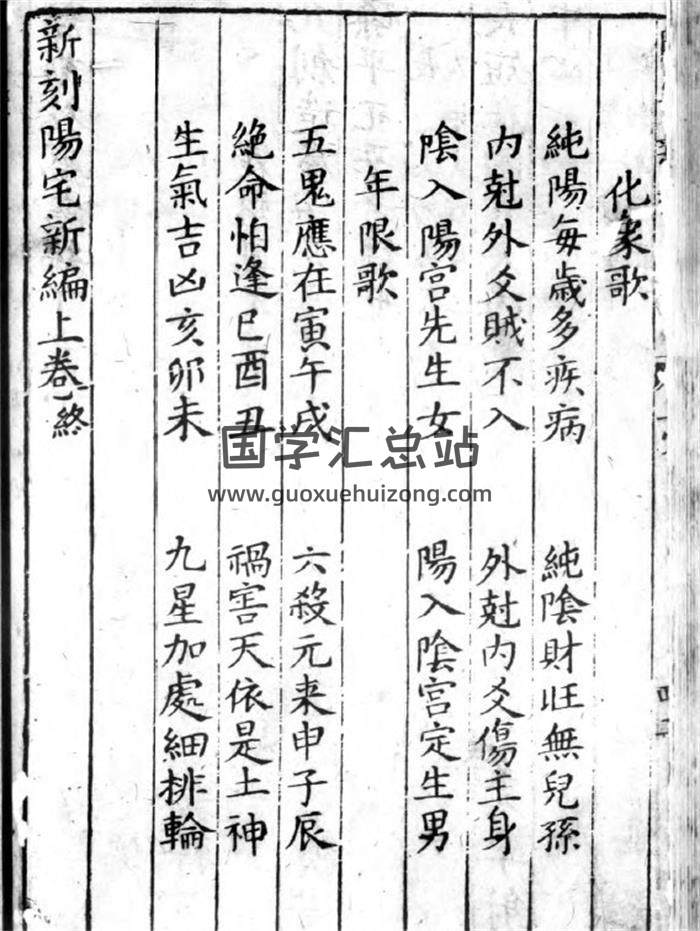 化象歌
純陽每歲多疾病 純陰財旺無兒孫
內尅外爻賊不入 外尅內爻傷主身
陰入陽宮先生女 陽入陰宮定生男
年限歌
五鬼應在寅午戌 六殺元来申子辰
絕命怕逢巳酉丑 禍害天依是土神
生氣吉凶亥卯未 九星加處細排輪
新刻陽宅新編上卷終
国学汇总站
www.guoxuehuizong.com